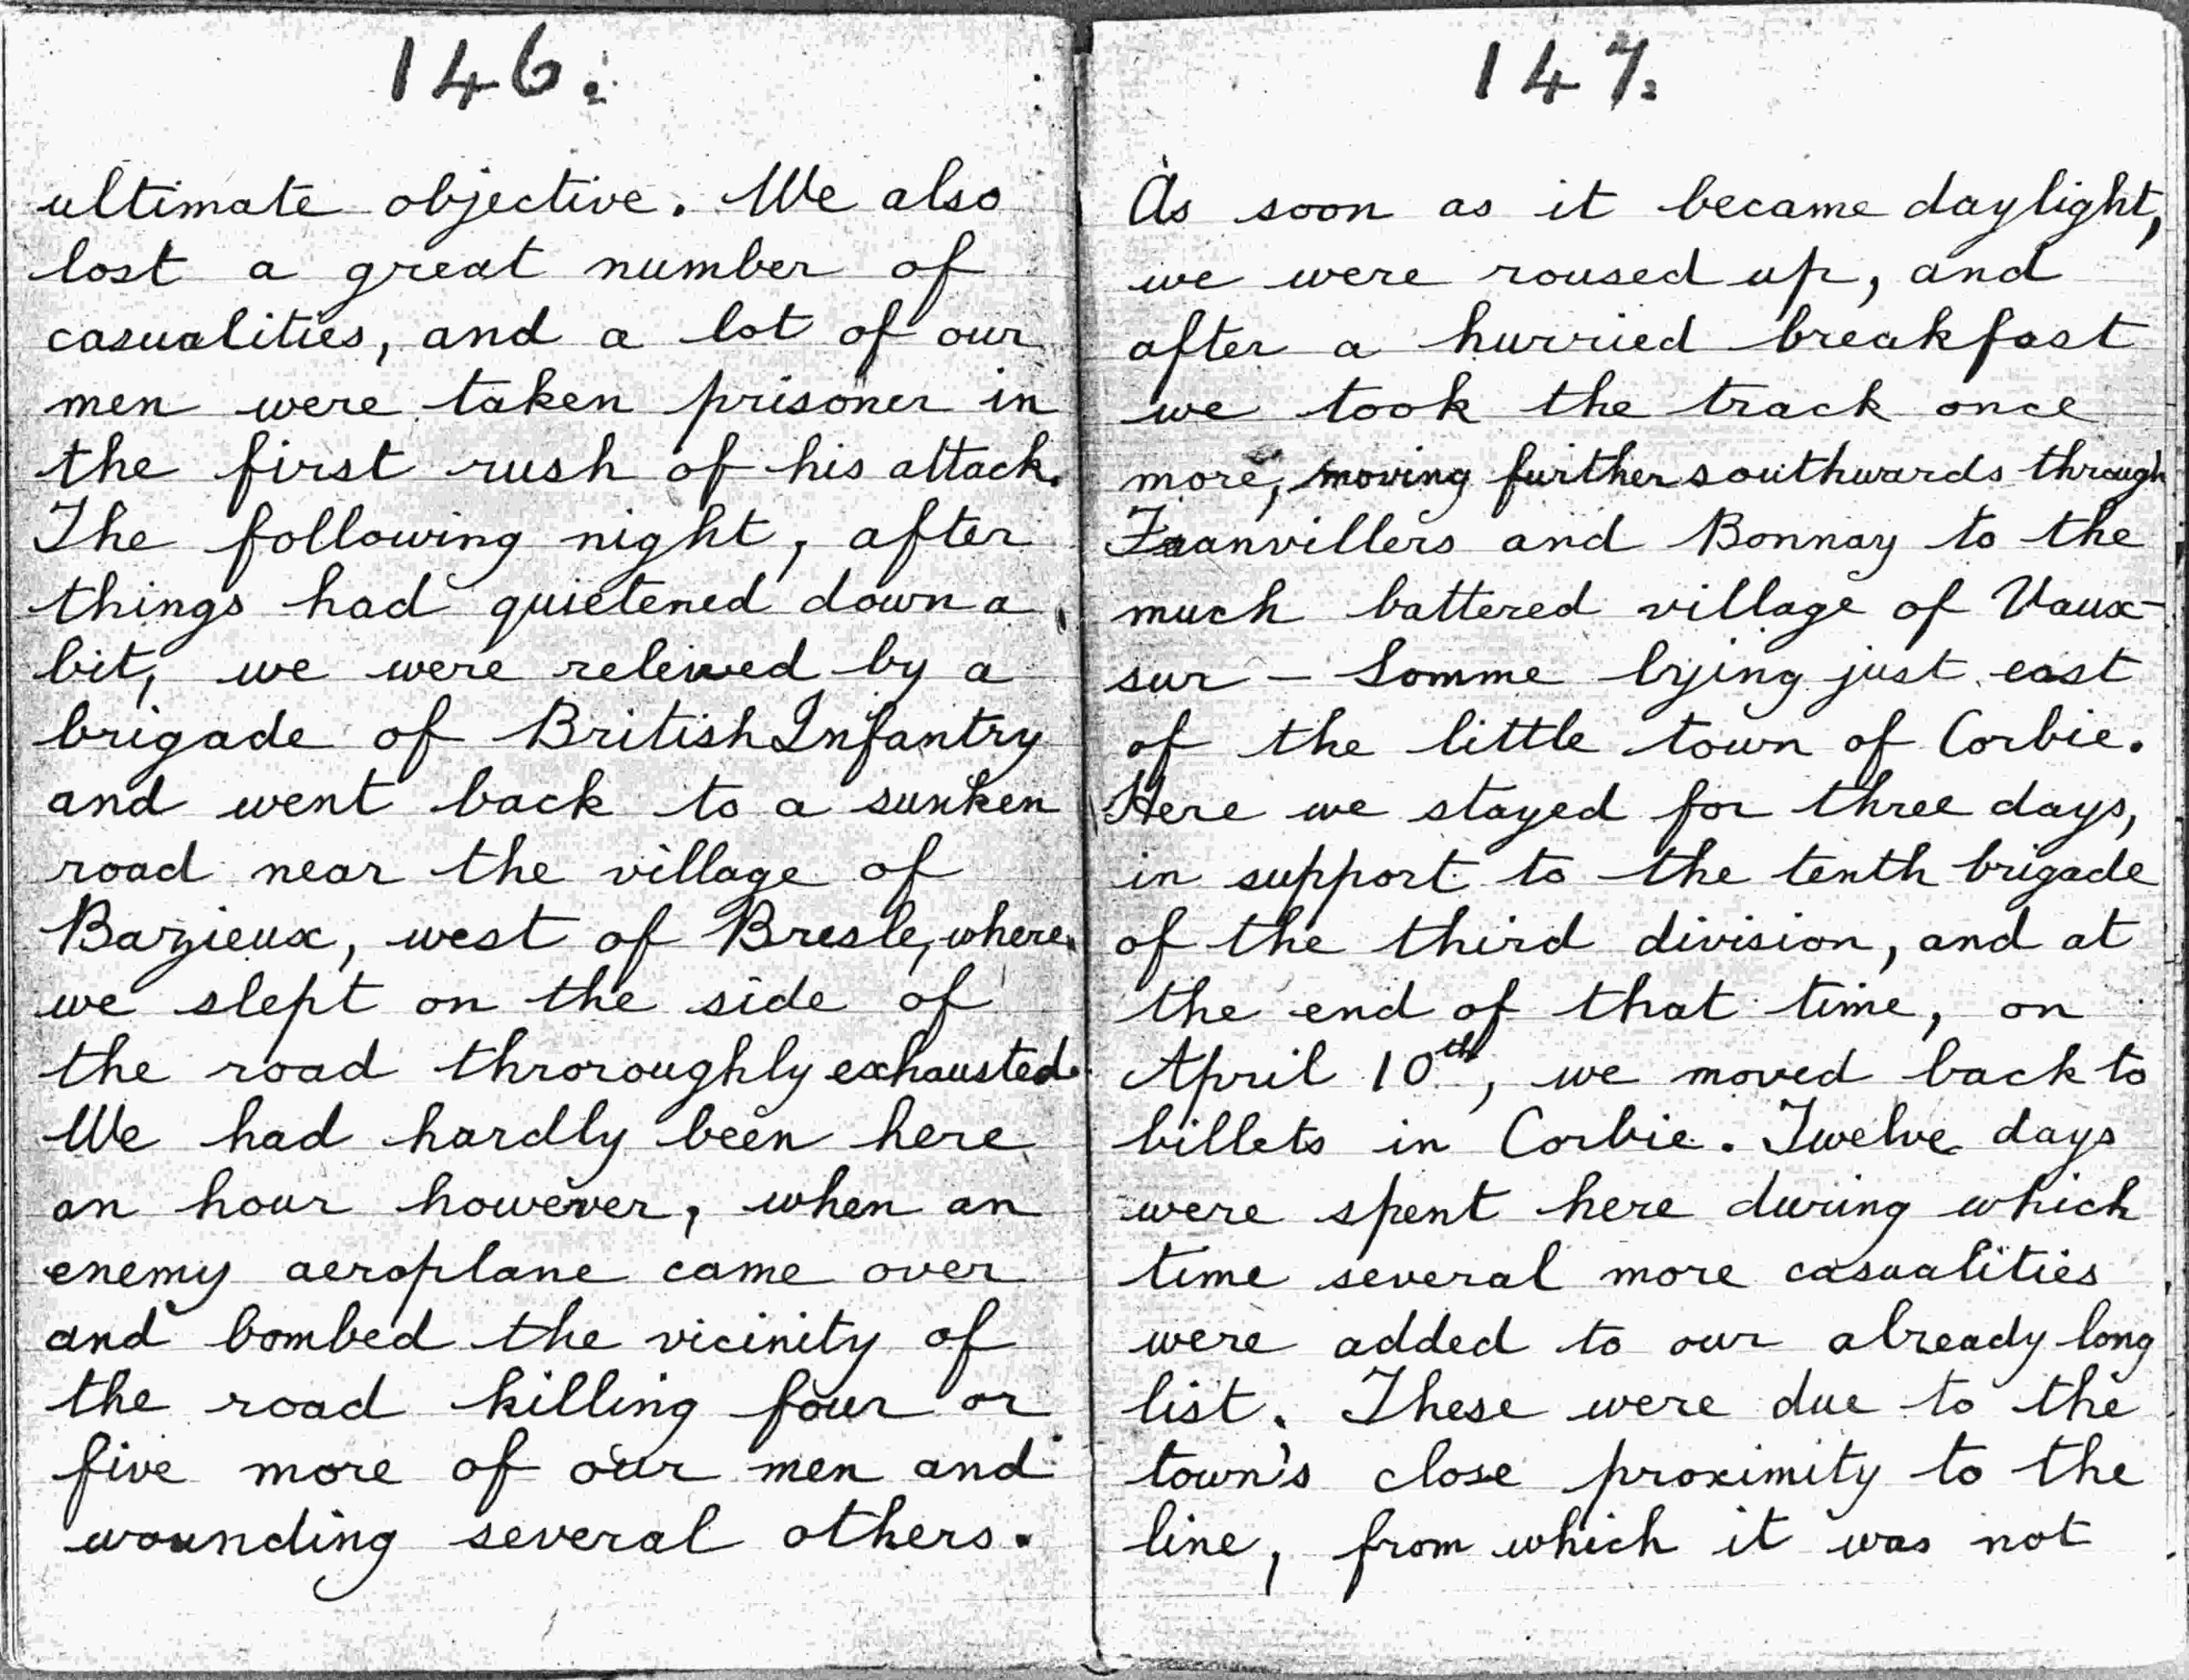 146.
ultimate objective. We also
lost a great number of
casualities, and a lot of our
men were taken prisoner in
the first rush of his attack.
The following night, after
things had quietened down a
bit, we were releived by a
brigade of British Infantry
and went back to a sunken
road near the village of
Bazieux, west of Bresle, where
we slept on the side of
the road throroughly exhausted.
We had hardly been here
an hour however, when an
enemy aeroplane came over
and bombed the vicinity of
the road killing four or
five more of our men and
wounding several others.
147.
As soon as it became daylight,
we were roused up, and
after a hurried breakfast
we took the track once
more, moving further southwards through
Franvillers and Bonnay to the
much battered village of Vaux-
sur - Somme lying just east
of the little town of Corbie.
Here we stayed for three days,
in support to the tenth brigade
of the third division, and at
the end of that time, on
April 10th, we moved back to
billets in Corbie. Twelve days
were spent here during which
time several more casualities
were added to our already long
list. These were due to the
town's close proximity to the
line, from which it was not